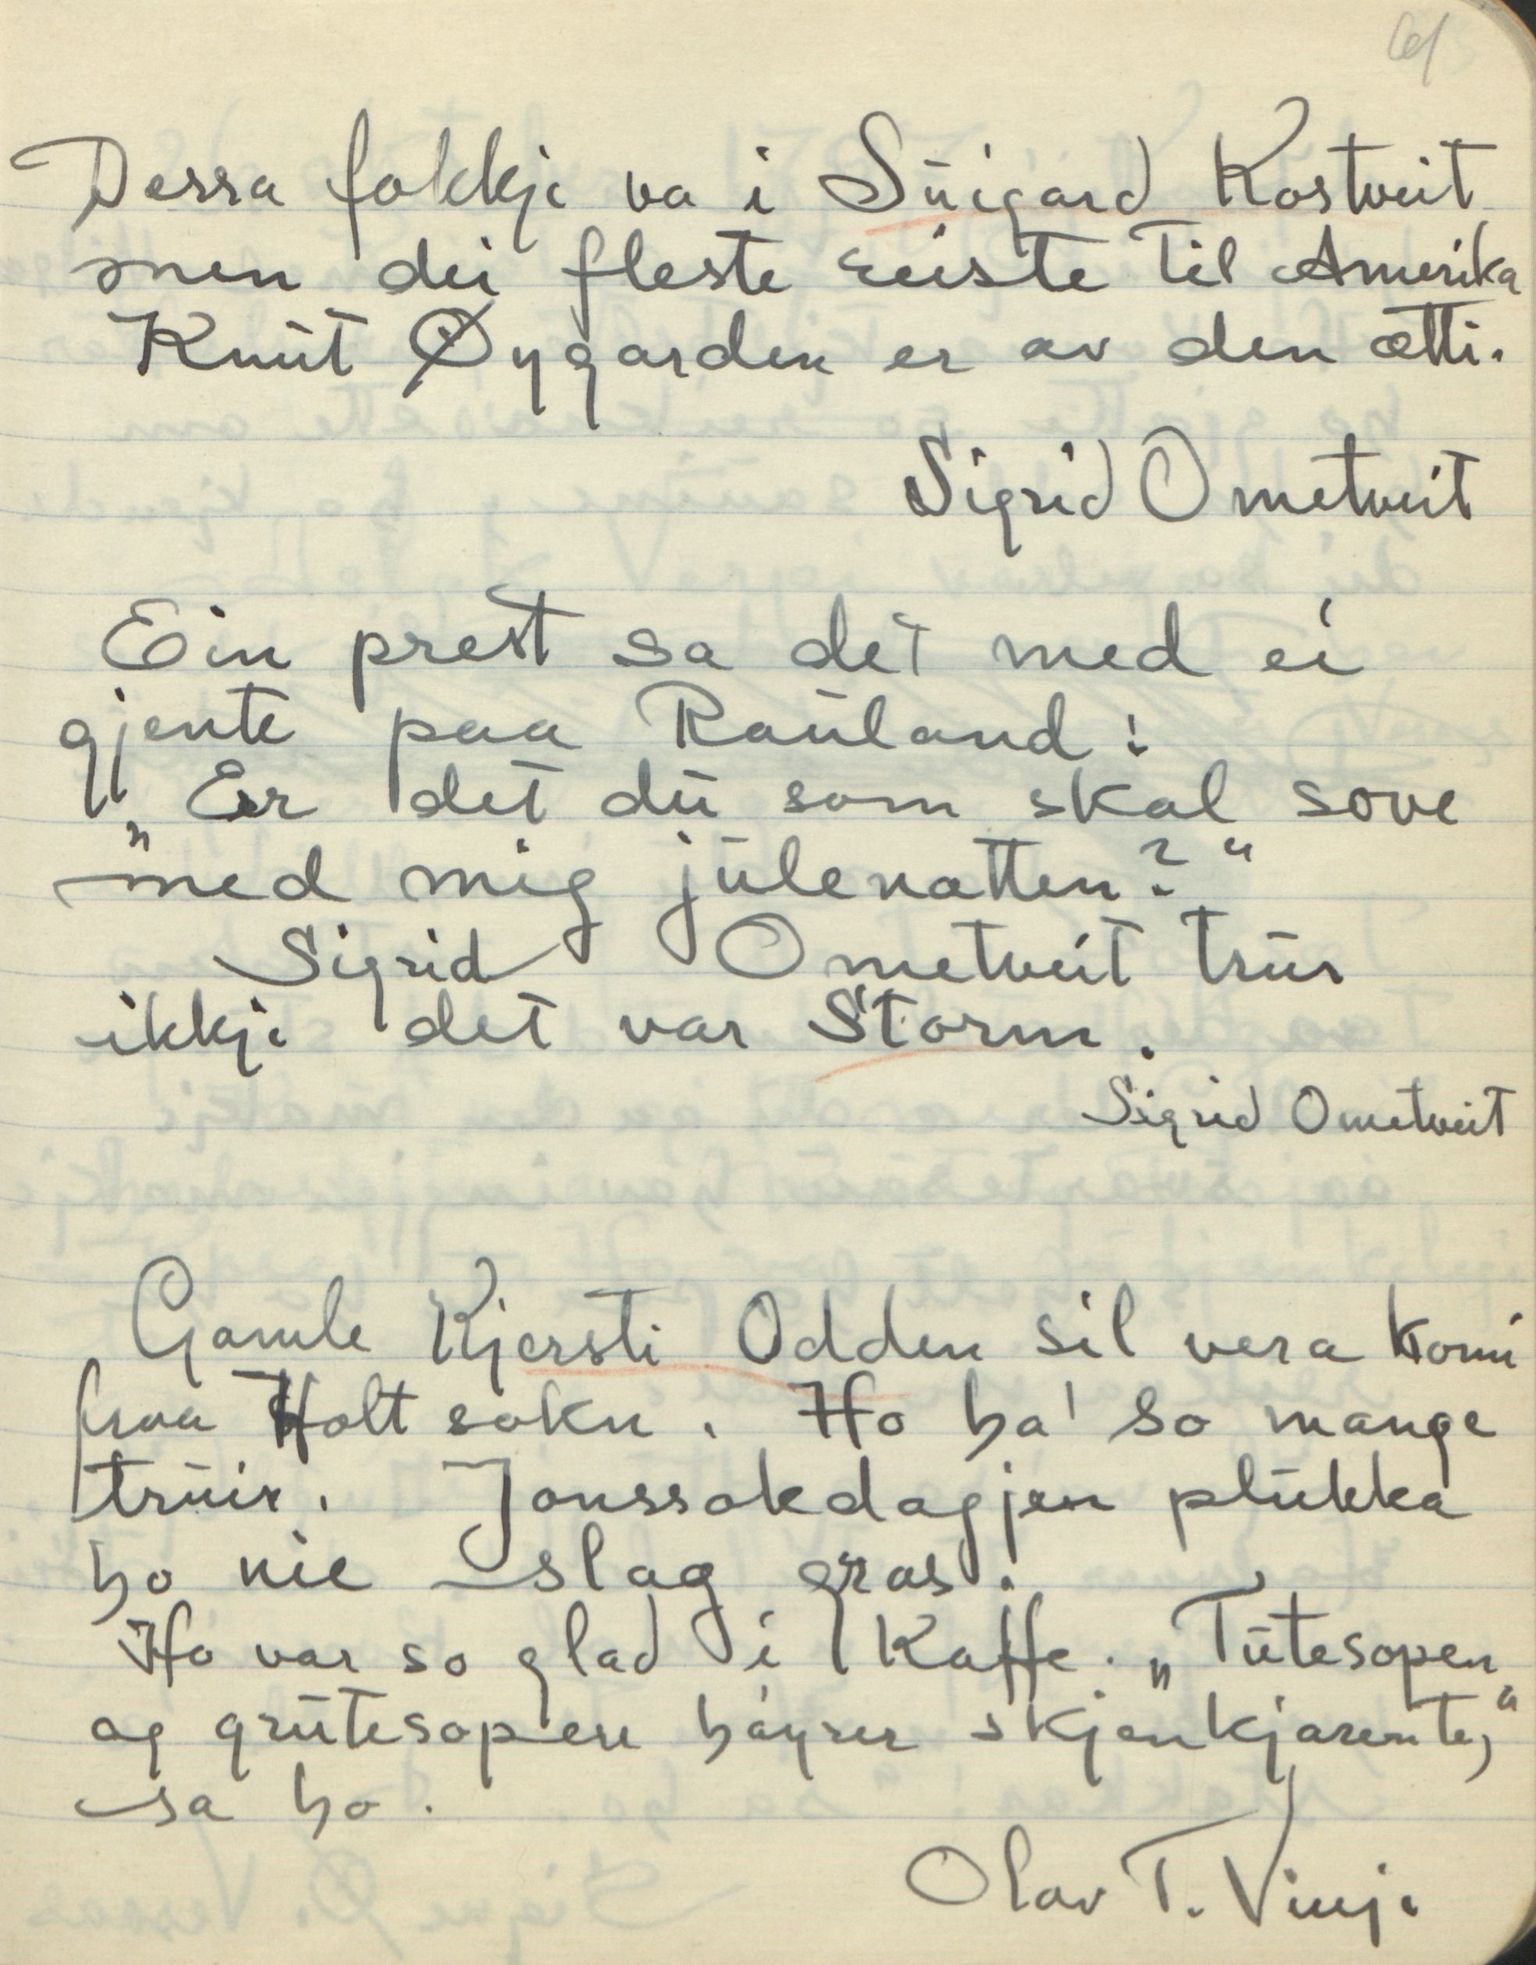 61
Dessa fokkje va i Suigard Kostveit
men dei fleste reiste til Amerika
Knut Øygarden er av den ætti.
Sigrid Ometveit
Ein prest sa det med ei
gjente paa Rauland:
"Er det du som skal sove
med mig julenatten?"
Sigrid Ometveit truir
ikkje det var Storm.
Sigrid Ometveit
Gamle Kjersti Odden sil vera komi
fraa Holt sokn. Ho ha' so mange
truir. Jonssokdagjen plukka
ho nie slag gras.
Ho var so glad i Kaffe. "Tutesopen
og grutesopen høyrer skjenkjarente,"
sa ho.
Olav T. Vinje